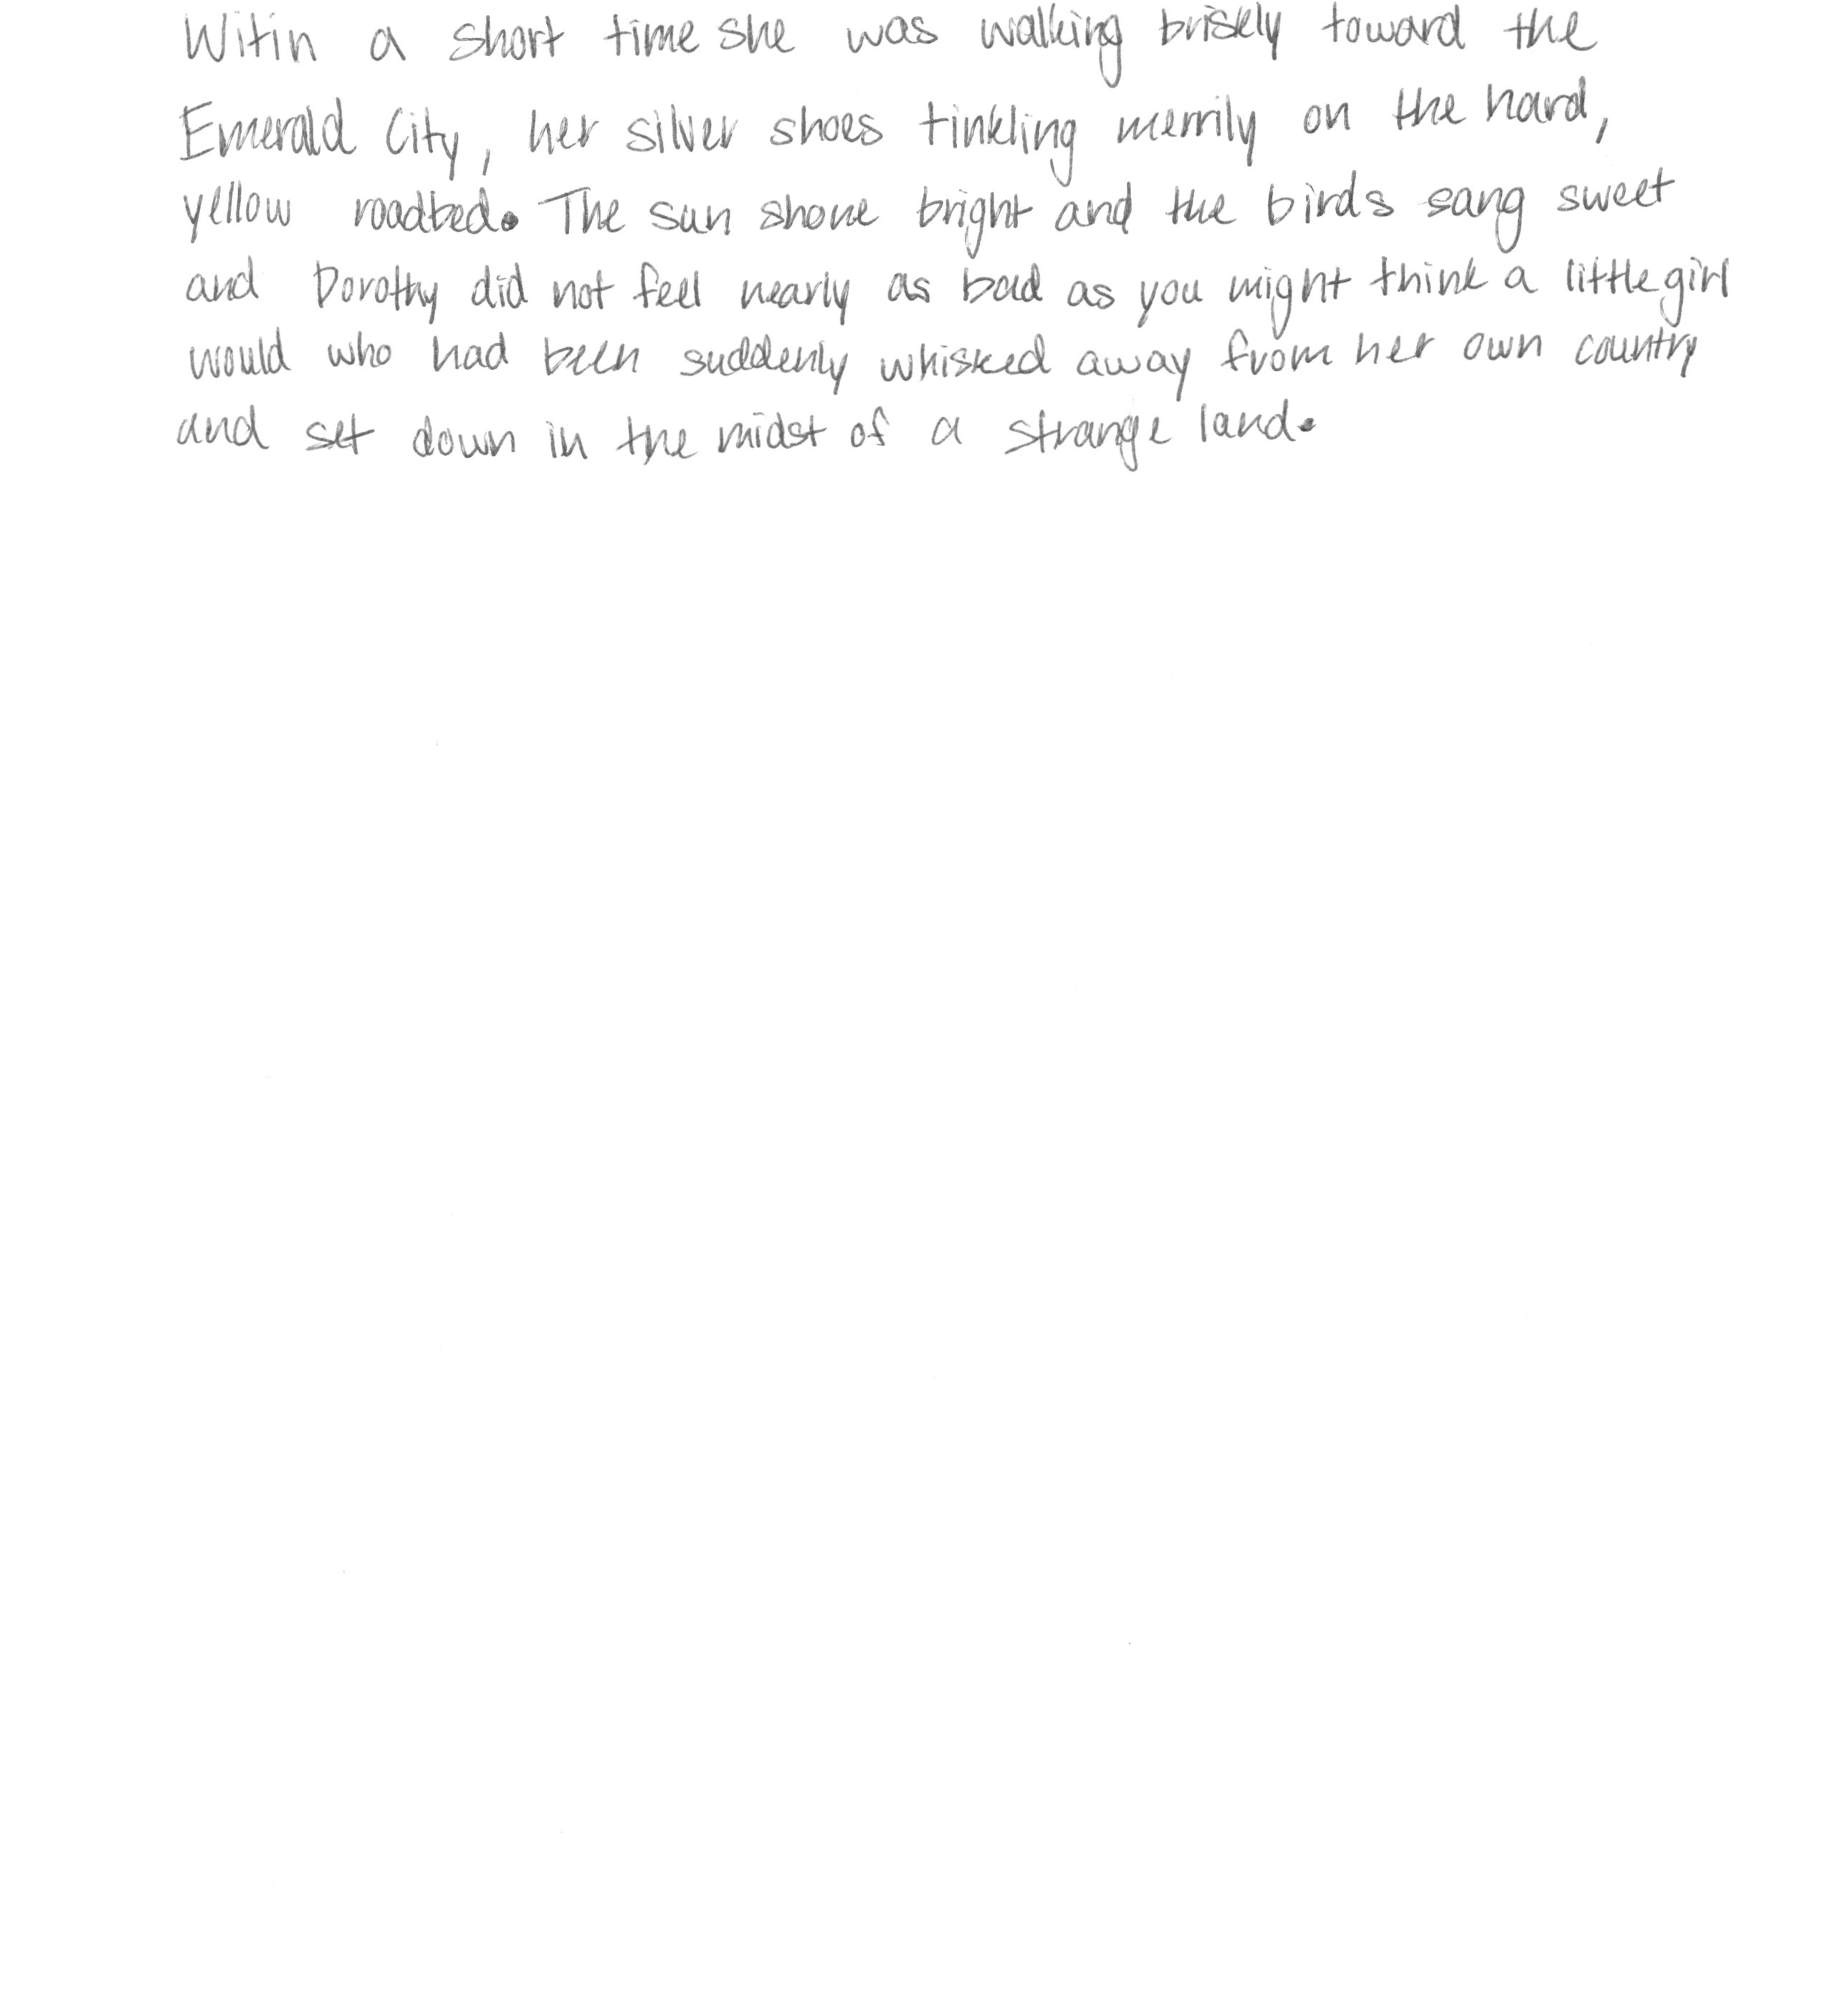 Witin a short time she was walking briskly toward the
Emerald City, her silver shoes tinkling merrily on the hard,
yellow roadbed. The sun shone bright and the birds sang sweet
and Dorothy did not feel nearly as bad as you might think a little girl
would who had been suddenly whisked away from her own country
and set down in the midst of a strange land.